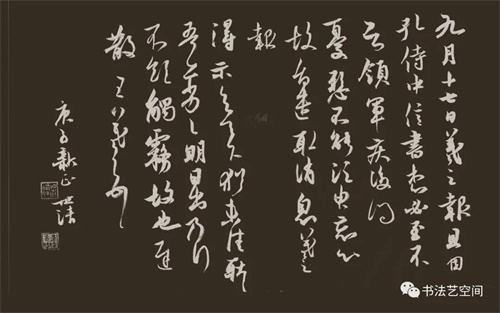 九月十七日羲之報且因
孔侍中信書想必至不
知領軍疾後問
憂懸不能須臾忘心
故旨遣取消息羲之
報
得示知足下猶未佳耿
吾亦劣〻明日出乃行
不欲觸霧故也遲
散王羲之頓首
庚子新正
书法艺空间